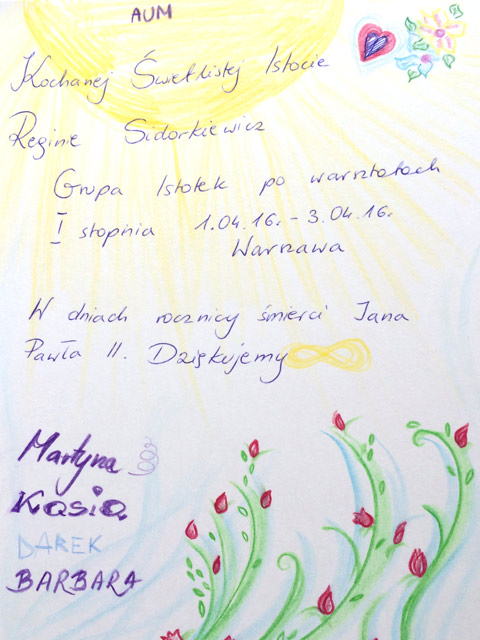 AUM
Kochanej Świetlistej Istocie
Reginie Sidorkiewicz
Grupa Istotek po warsztatach
I stopnia 1.04.16. - 3.04.16.
Warszawa
W dniach rocznicy śmierci Jana
Pawła II. Dziękujemy
Martyna
Kasia
DAREK
BARBARA